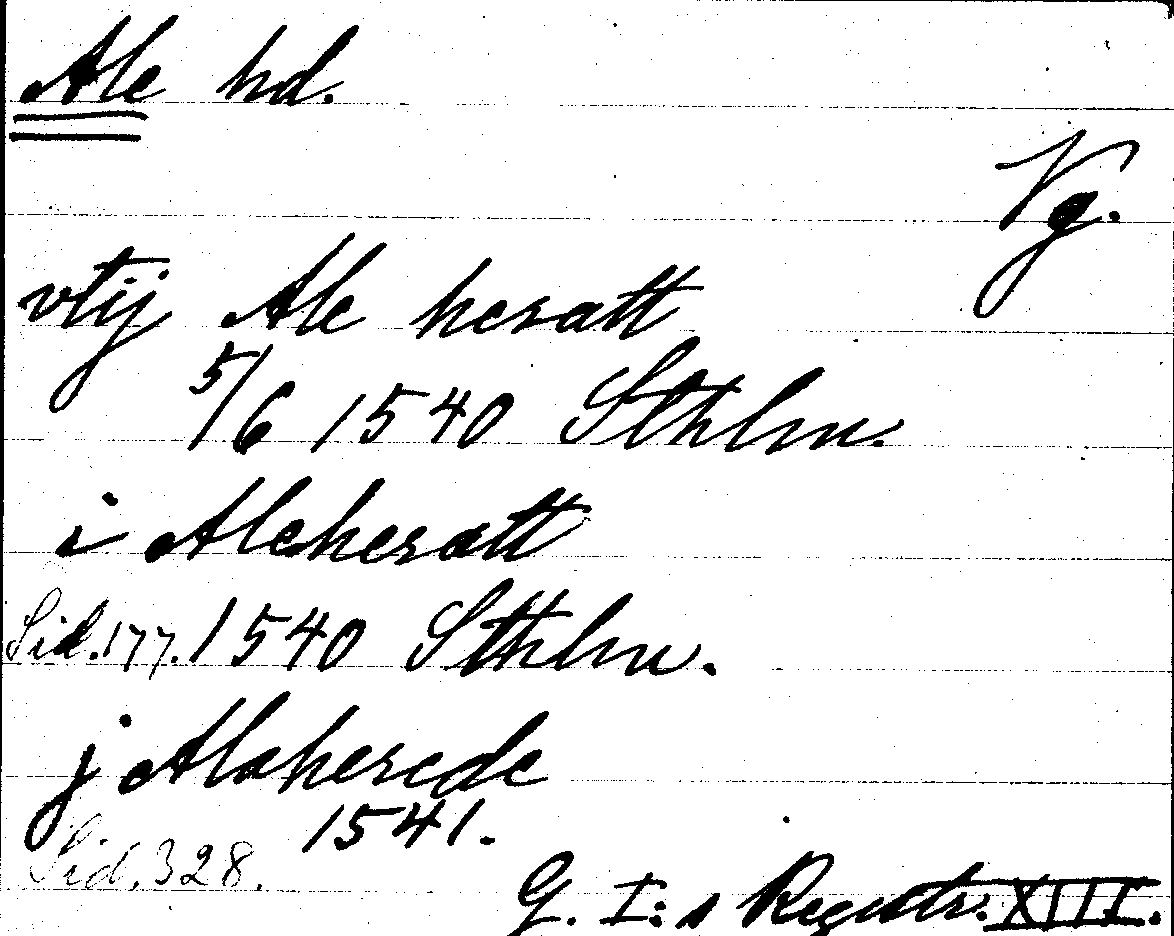 Ale hd.
Vg.
vtij Ale heratt
5/6 1540 Sthlm.
i Aleheratt
Sid. 177. 1540 Sthlm.
j Alaherede
1541.
Sid. 328.
G. I:s Registr. XIII.